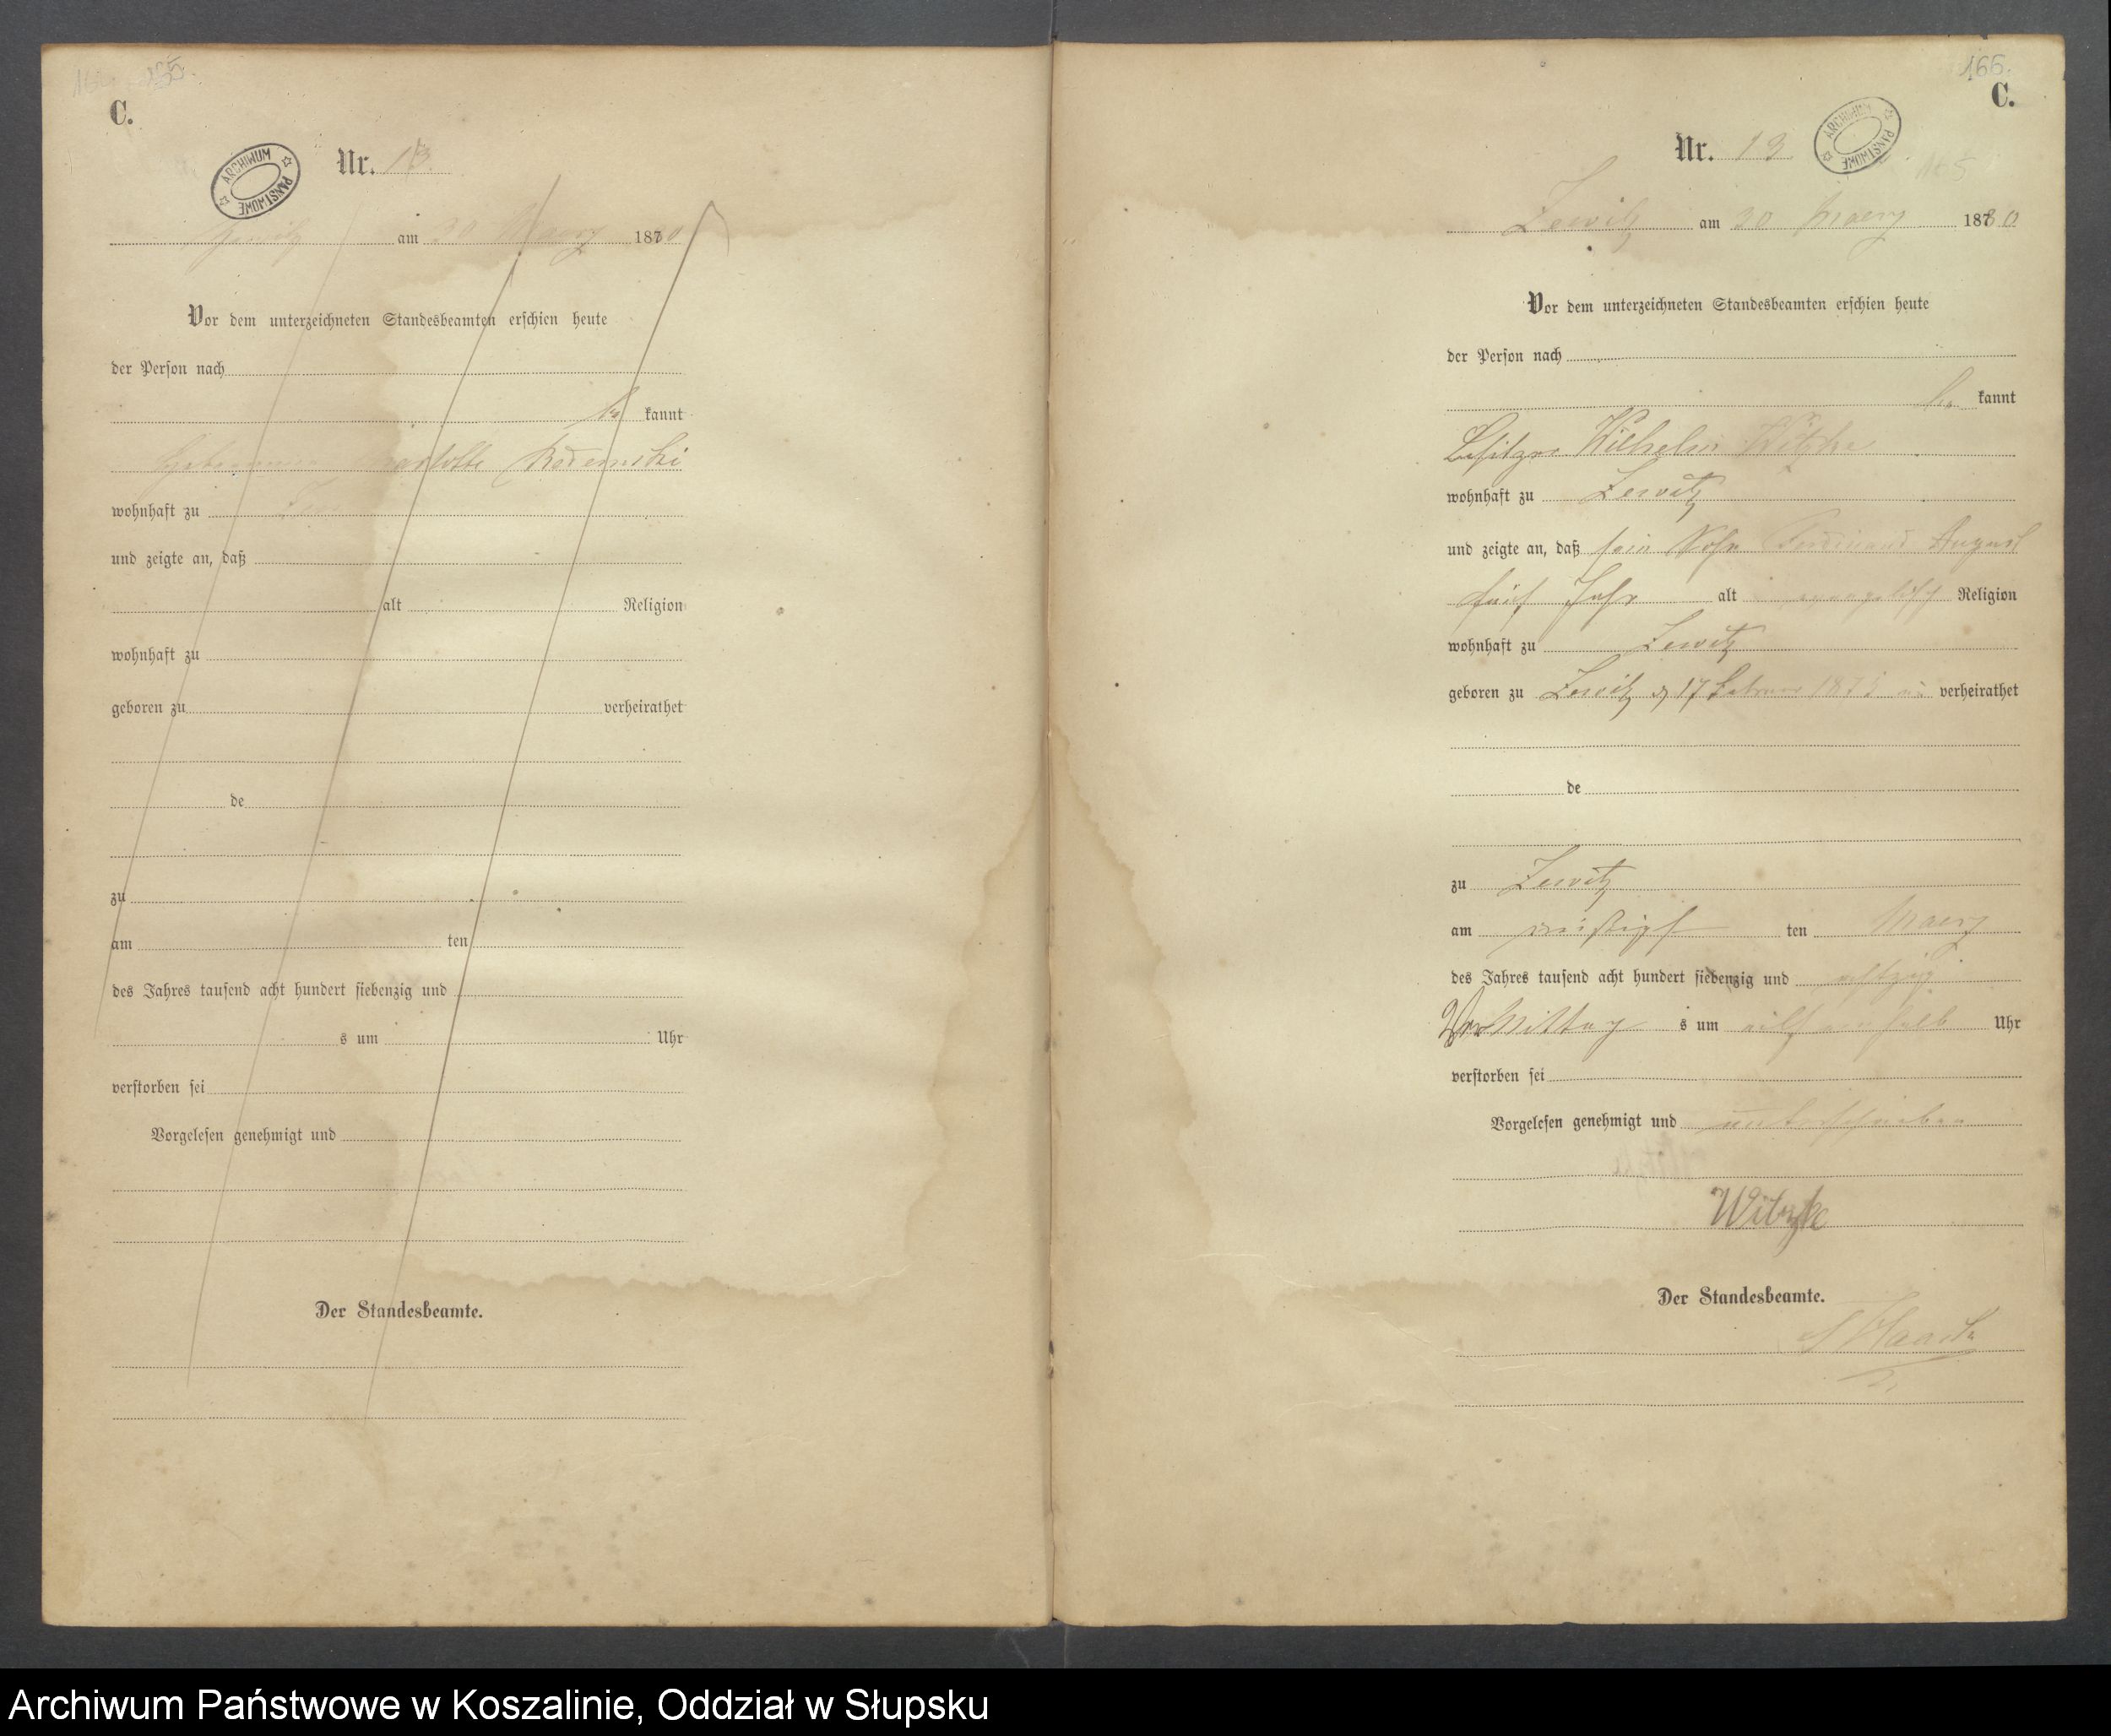 C.
ARCHIWUM PAŃSTWOWE
Nr. 13.
am 30 Maerz 1880
Vor dem unterzeichneten Standesbeamten erschien heute
der Person nach
be kannt
Charlotte
wohnhaft zu
und zeigte an, daß
alt Religion
wohnhaft zu
geboren zu verheirathet
de
zu
am ten
des Jahres tausend acht hundert siebenzig und
s um Uhr
verstorben sei
Vorgelesen genehmigt und
Der Standesbeamte.
166.
C.
ARCHIWUM PAŃSTWOWE
Nr. 13
Zewitz am 30 Maerz 1880
Vor dem unterzeichneten Standesbeamten erschien heute
der Person nach
be kannt
Besitzer Wilhelm Witzke
wohnhaft zu Zewitz
und zeigte an, daß sein Sohn Ferdinand August
fünf Jahr alt evangelisch Religion
wohnhaft zu Zewitz
geboren zu Zewitz d 17 Februar 1875 un verheirathet
de
zu Zewitz
am dreißigst ten Maerz
des Jahres tausend acht hundert siebenzig und achtzig
Vormittag s um Uhr
verstorben sei
Vorgelesen genehmigt und unterschrieben
Witzke
Der Standesbeamte.
Archiwum Państwowe w Koszalinie, Oddział w Słupsku